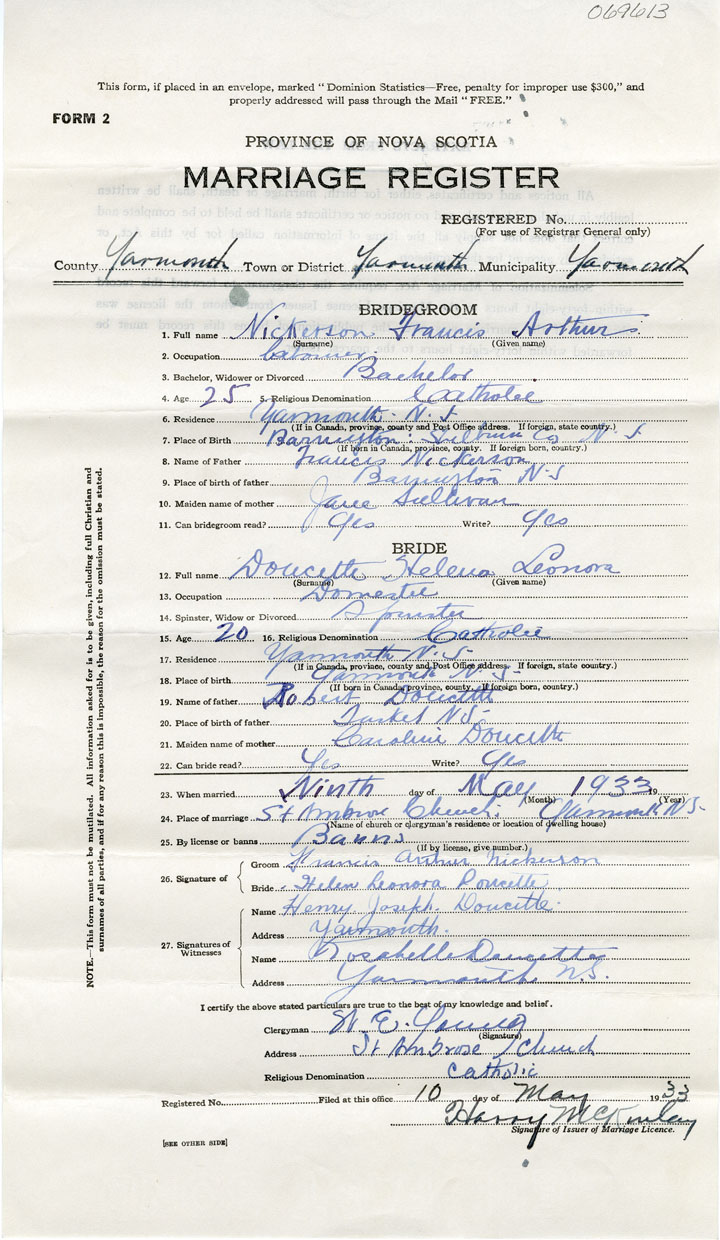 069613
This form, if placed in an envelope, marked "Dominion Statistics—Free, penalty for improper use $300," and
properly addressed will pass through the Mail "FREE."
FORM 2
PROVINCE OF NOVA SCOTIA
MARRIAGE REGISTER
REGISTERED No.
(For use of Registrar General only)
County Yarmouth Town or District Yarmouth Municipality Yarmouth
BRIDEGROOM
1. Full name Nickerson Francis Arthur
(Surname) (Given name)
2. Occupation Labourer
3. Bachelor, Widower or Divorced Bachelor
4. Age 25 5. Religious Denomination Catholic
6. Residence Yarmouth N.S
(If in Canada, province, county and Post Office address. If foreign, state country.)
7. Place of Birth Barrington Co N S
(If born in Canada, province, county. If foreign born, country.)
8. Name of Father Francis Nickerson
9. Place of birth of father Barrington N-S
10. Maiden name of mother Jane Sullivan
11. Can bridegroom read? Yes Write? Yes
BRIDE
12. Full name Doucette Helena Leonora
(Surname) (Given name)
13. Occupation Domestic
14. Spinster, Widow or Divorced Spinster
15. Age 20 16. Religious Denomination Catholic
17. Residence Yarmouth N.S-
(If in Canada, province, county and Post Office address. If foreign, state country.)
18. Place of birth Yarmouth N-S-
(If born in Canada, province, county. If foreign born, country.)
19. Name of father Robert Doucette
20. Place of birth of father Tusket N S-
21. Maiden name of mother Caroline Doucette
22. Can bride read? Yes Write? Yes
23. When married Ninth day of May 1933 19
(Month) (Year)
24. Place of marriage St Ambrose Church. Yarmouth N S-
(Name of church or clergyman's residence or location of dwelling house)
25. By license or banns Banns
(If by license, give number.)
26. Signature of Groom Francis Arthur Nickerson
Bride Helen Leonora Doucette
27. Signatures of Witnesses Name Henry Joseph Doucette
Address Yarmouth.
Name Rosabelle Doucette
Address Yarmouth N.S.
I certify the above stated particulars are true to the best of my knowledge and belief.
Clergyman W. E. Young
(Signature)
Address St Ambrose Church
Religious Denomination Catholic
Registered No. Filed at this office 10 day of May 1933
Harry McKinlay
Signature of Issuer of Marriage Licence.
[SEE OTHER SIDE]
NOTE.—This form must not be mutilated. All information asked for is to be given, including full Christian and
surnames of all parties, and if for any reason this is impossible, the reason for the omission must be stated.